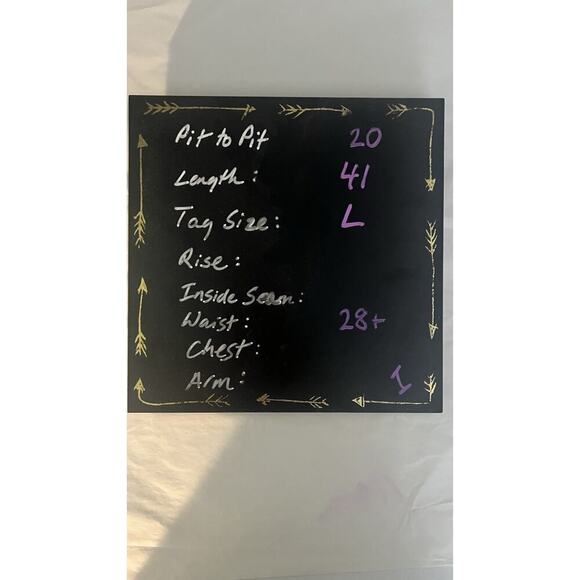 Pit to Pit 20
Length: 41
Tag Size: L
Rise:
Inside Seam:
Waist: 28+
Chest:
Arm:
I